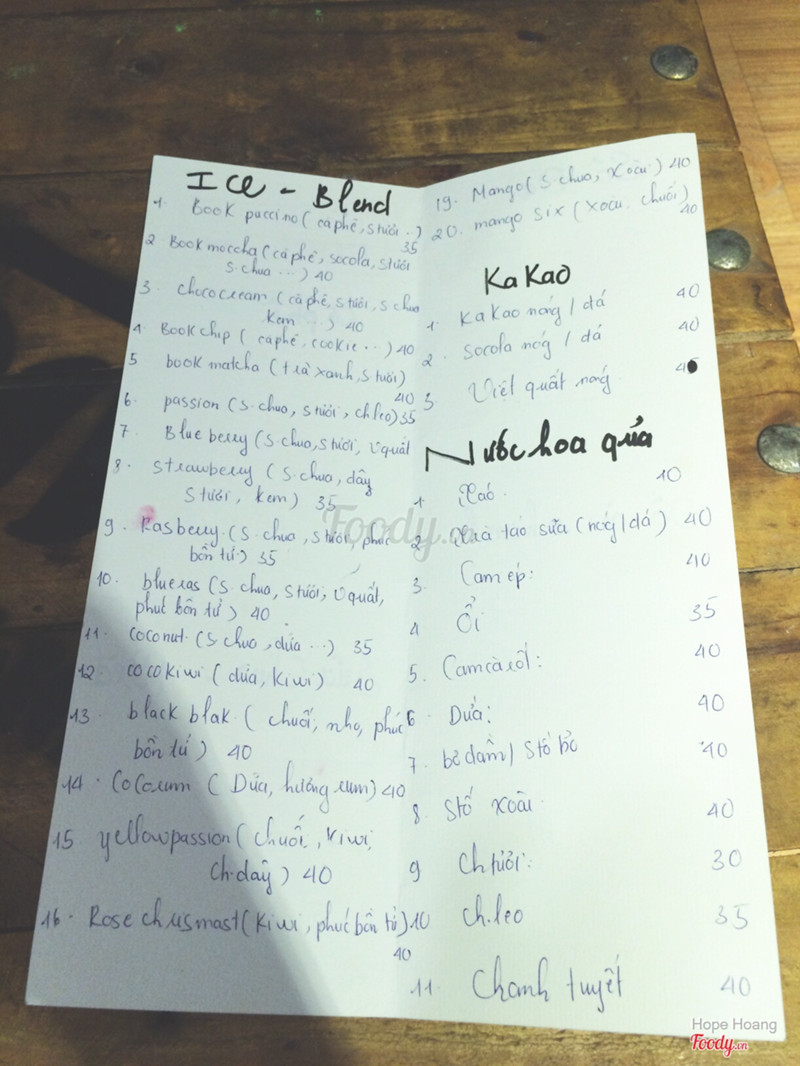 ICe - Blend
1. Book puccino (cà phê, s tươi ..)
35
2 Book moccha (cà phê, socola, s tươi
s. chua ...) 40
3. chococream (cà phê, s tươi, s chua
kem ...) 40
4. Book chip (cà phê, cookie ..) 40
5 book matcha (trà xanh, s tươi)
40
6. passion (s. chua, s tươi, ch leo) 35
7. Blue berry (s. chua, s tươi, v quất
8. strawberry (s. chua, dâu
s tươi, kem) 35
9. Rasberry (s. chua, s tươi, phúc
bồn tử) 35
10. blueras (s. chua, s tươi, v quất,
phúc bồn tử) 40
11. coconut (s chua, dừa ...) 35
12. coco kiwi (dừa, kiwi) 40
13. black blak (chuối, nho, phúc
bồn tử) 40
14. Cocorum (Dừa, hương rum) 40
15. yellow passion (chuối, kiwi,
ch. dây) 40
16. Rose chrismast (kiwi, phúc bồn tử)
40
19. Mango (s. chua, xoài) 40
20. mango six (xoài, chuối)
40
KaKao
1. KaKao nóng / đá 40
2. socola nóg / đá 40
3. Việt quất nóng
Nước hoa qủa
1. Táo. 40
2 Trà táo sữa (nóg / đá) 40
3. Cam ép: 40
4 Ổi 35
5. Cam cà rốt: 40
6. Dứa: 40
7. bơ dầm / Stố bơ 40
8. Stố xoài 40
9 Ch tươi: 30
10 ch. leo 35
11. Chanh tuyết 40
Foody.vn
Hope Hoang
Foody.vn